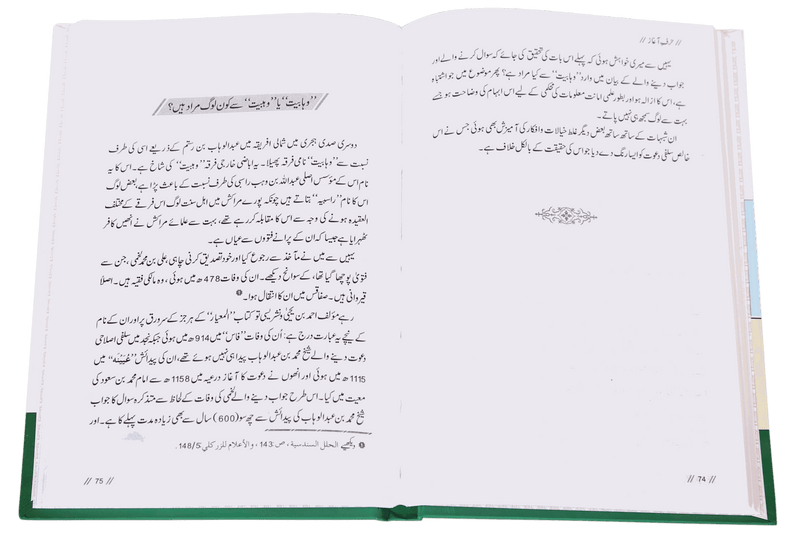 // حرفِ آغاز //
یہیں سے میری خواہش ہوئی کہ پہلے اس بات کی تحقیق کی جائے کہ سوال کرنے والے اور
جواب دینے والے کے بیان میں وارد ’’وہابیت‘‘ سے کیا مراد ہے؟ پھر موضوع میں جو اشتباہ
ہے، اس کا ازالہ ہو اور بطورِ علمی امانت معلومات کی پختگی کے لیے اس ابہام کی وضاحت ہو جسے
بہت سے لوگ سمجھ ہی نہیں پاتے۔
ان شبہات کے ساتھ ساتھ بعض دیگر غلط خیالات و افکار کی آمیزش بھی ہوئی جس نے اس
خالص سلفی دعوت کو ایسا رنگ دے دیا جو اس کی حقیقت کے بالکل خلاف ہے۔
// 74 //
’’وہابیت‘‘ یا ’’وہبیت‘‘ سے کون لوگ مراد ہیں؟
دوسری صدی ہجری میں شمالی افریقہ میں عبدالوہاب بن رستم کے ذریعے اسی کی طرف
نسبت سے ’’وہابیت‘‘ نامی فرقہ پھیلا۔ یہ اباضی خارجی فرقہ ’’وہبیت‘‘ کی شاخ ہے۔ اس کا یہ
نام اس کے مؤسس اصلی عبداللہ بن وہب راسبی کی طرف نسبت کے باعث پڑا ہے، بعض لوگ
اس کا نام ’’راسبیہ‘‘ بتاتے ہیں چونکہ پورے مراکش میں اہل سنت لوگ اس فرقے کے مختلف
العقیدہ ہونے کی وجہ سے اس کا مقابلہ کر رہے تھے، بہت سے علمائے مراکش نے انھیں کافر
ٹھہرایا ہے جیسا کہ ان کے پرانے فتووں سے عیاں ہے۔
یہیں سے میں نے مآخذ سے رجوع کیا اور خود تصدیق کرنی چاہی، علی بن محمد لخمی، جن سے
فتویٰ پوچھا گیا تھا، کے سوانح دیکھے۔ ان کی وفات 478ھ میں ہوئی، وہ مالکی فقیہ ہیں۔ اصلاً
قیروانی ہیں۔ صفاقس میں ان کا انتقال ہوا۔
رہے مؤلف احمد بن یحییٰ ونشریسی تو کتاب ’’المعیار‘‘ کے ہر جز کے سرورق پر اور ان کے نام
کے نیچے یہ عبارت درج ہے: اُن کی وفات ’’فاس‘‘ میں 914ھ میں ہوئی جبکہ نجد میں سلفی اصلاحی
دعوت دینے والے شیخ محمد بن عبدالوہاب پیدا ہی نہیں ہوئے تھے، ان کی پیدائش ’’عُیَیْنَہ‘‘ میں
1115ھ میں ہوئی اور انھوں نے دعوت کا آغاز درعیہ میں 1158ھ سے امام محمد بن سعود کی
معیت میں کیا۔ اس طرح جواب دینے والے لخمی کی وفات کے لحاظ سے متذکرہ سوال کا جواب
شیخ محمد بن عبدالوہاب کی پیدائش سے چھ سو (600) سال سے بھی زیادہ مدت پہلے کا ہے۔ اور
❶ دیکھیے الحلل السندسیة، ص:143، والأعلام للزرکلي:148/5.
// 75 //